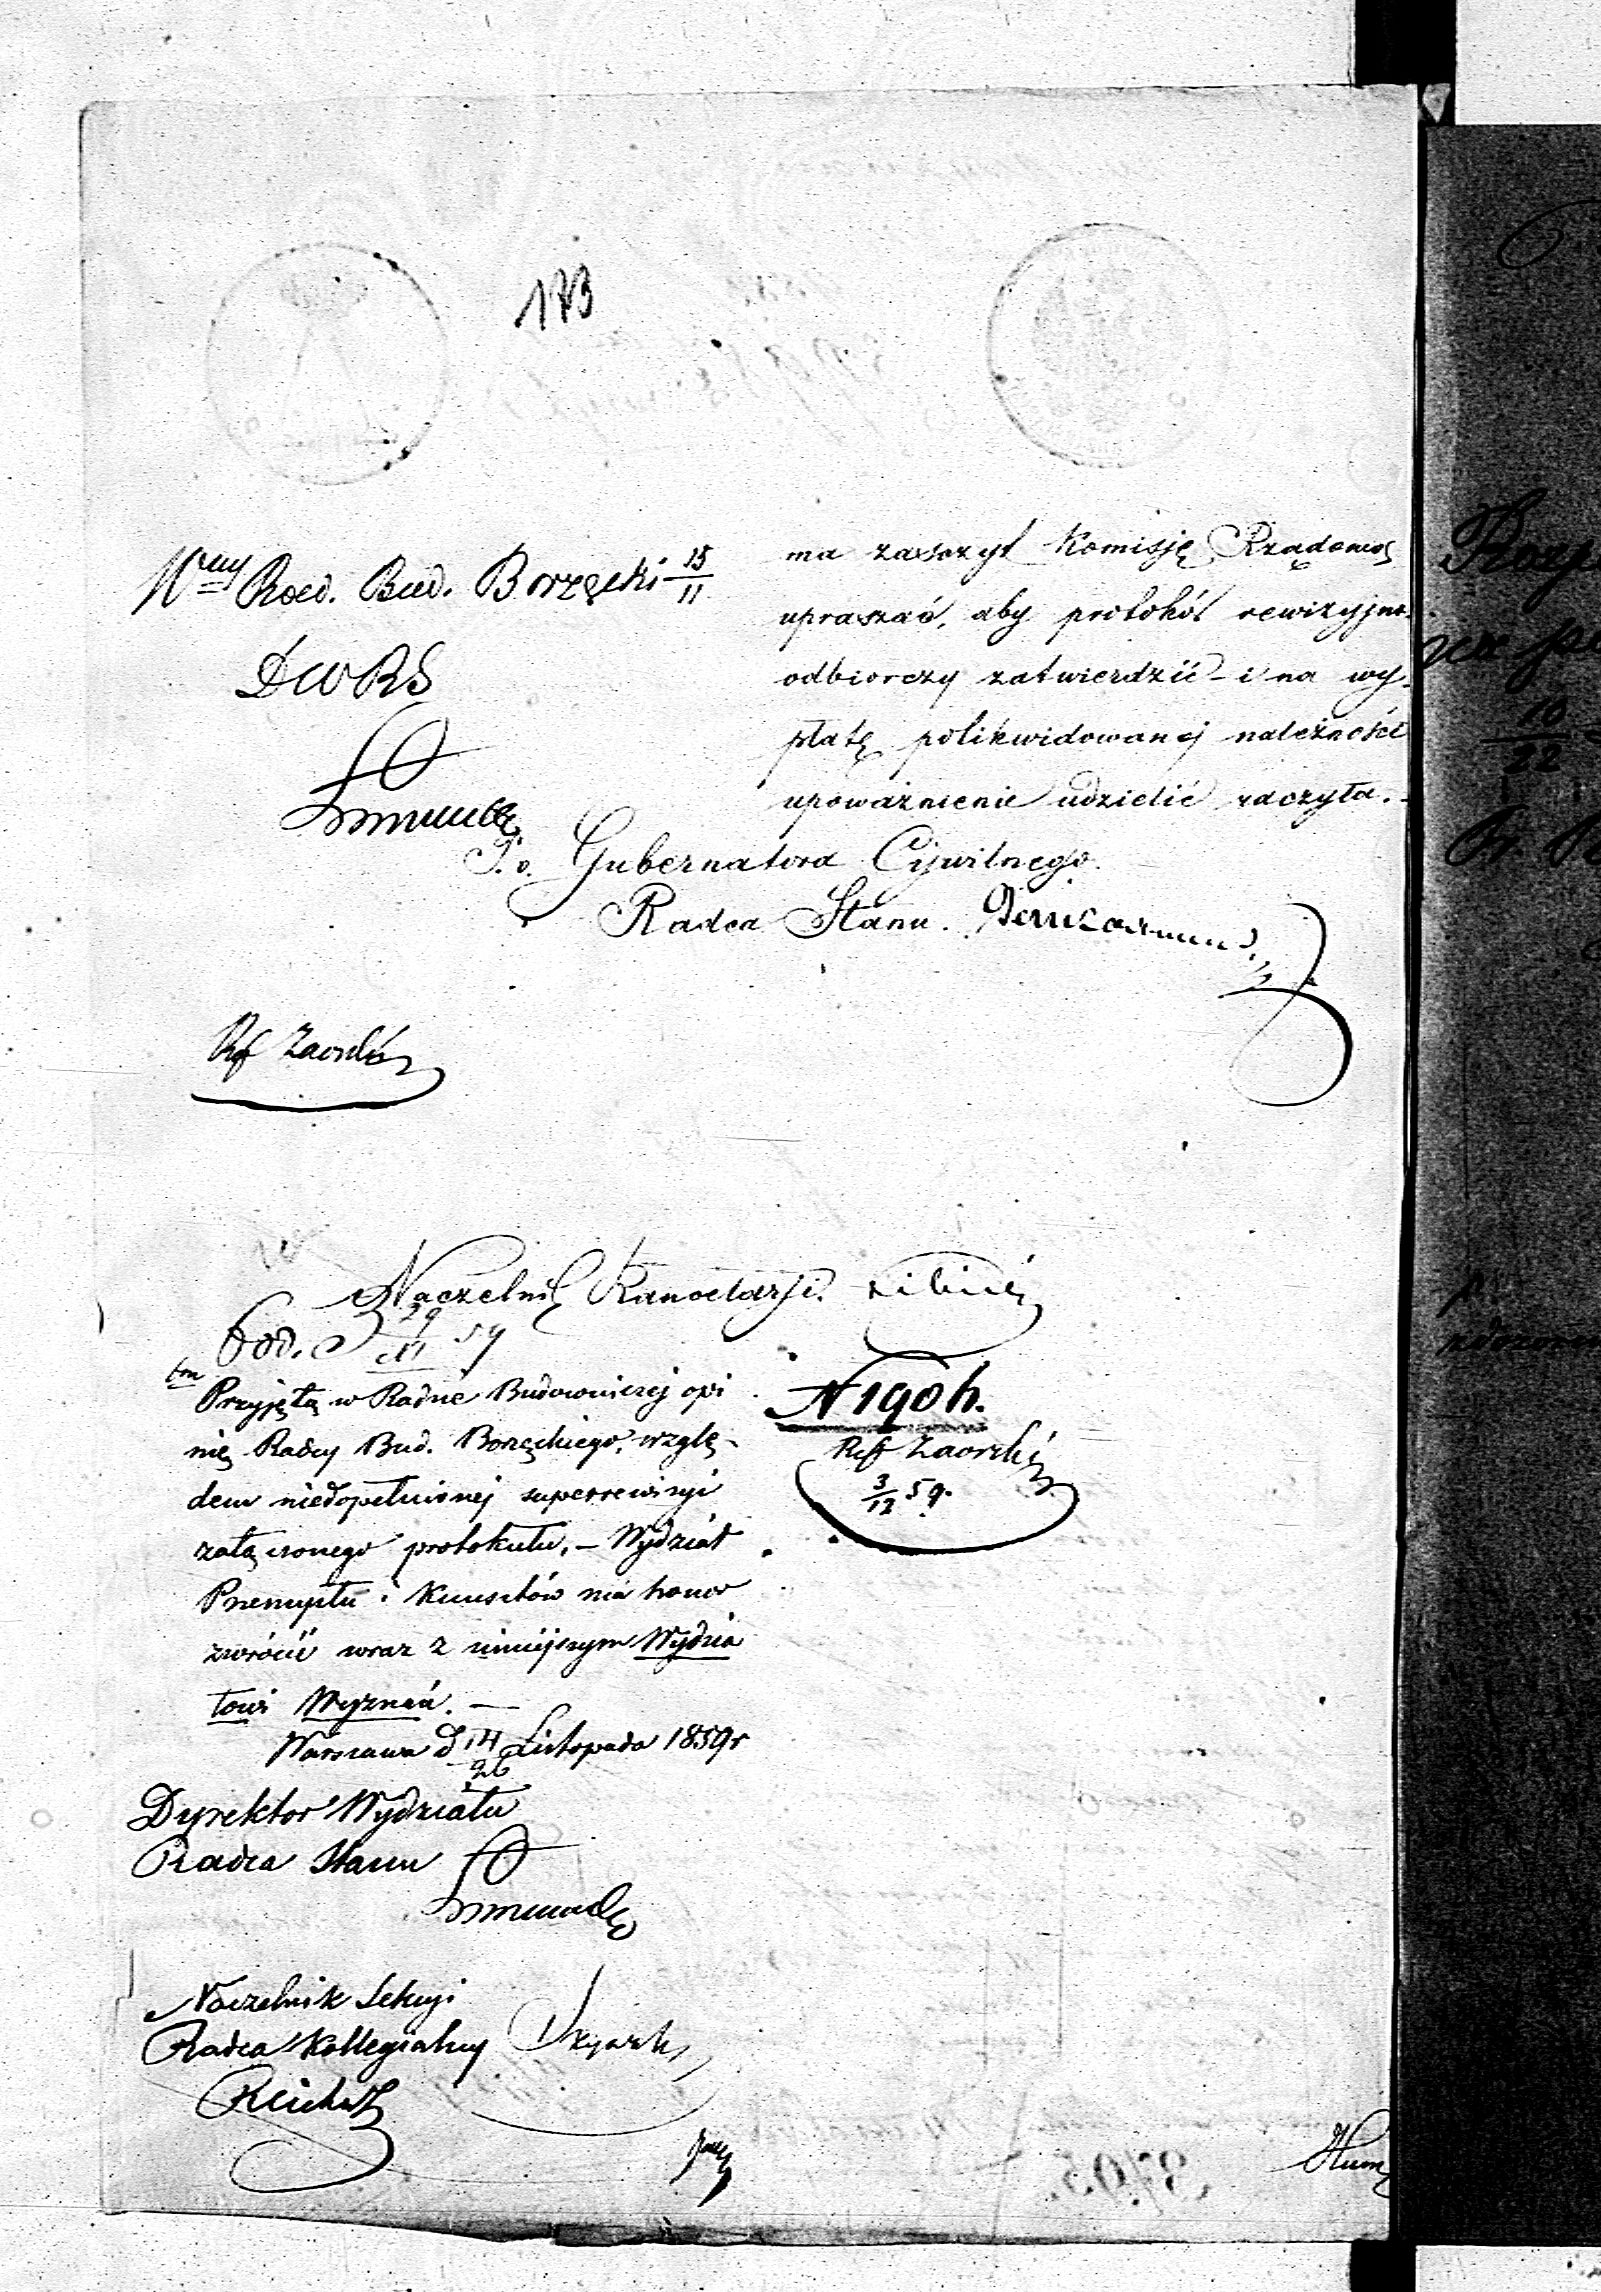 173
Wny Rad. Bud. Borzęcki 15/11
ma zaszczyt Komisję Rządową
upraszać, aby protokół rewizyjno-
odbiorczy zatwierdzić i na wy-
płatę polikwidowanej należności
upoważnienie udzielić raczyła.
P. o. Gubernatora Cywilnego.
Radca Stanu.
Rf Zaorski
Naczelnik Kancelarji.
29/XI 59
Przyjętą w Radzie Budowniczej opi
nię Radcy Bud. Borzęckiego, wzglę-
dem niedopełnionej superrewizyi
załączonego protokułu, – Wydział
Przemysłu i Kunsztów ma honor
zwrócić wraz z niniejszym Wydzia
łowi Wyznań. —
Warszawa d 14/26 Listopada 1859 r
N 190 h.
Ref Zaorski
3/12 59.
Dyrektor Wydziału
Radca Stanu
Naczelnik Sekcyi
Radca Kollegialny